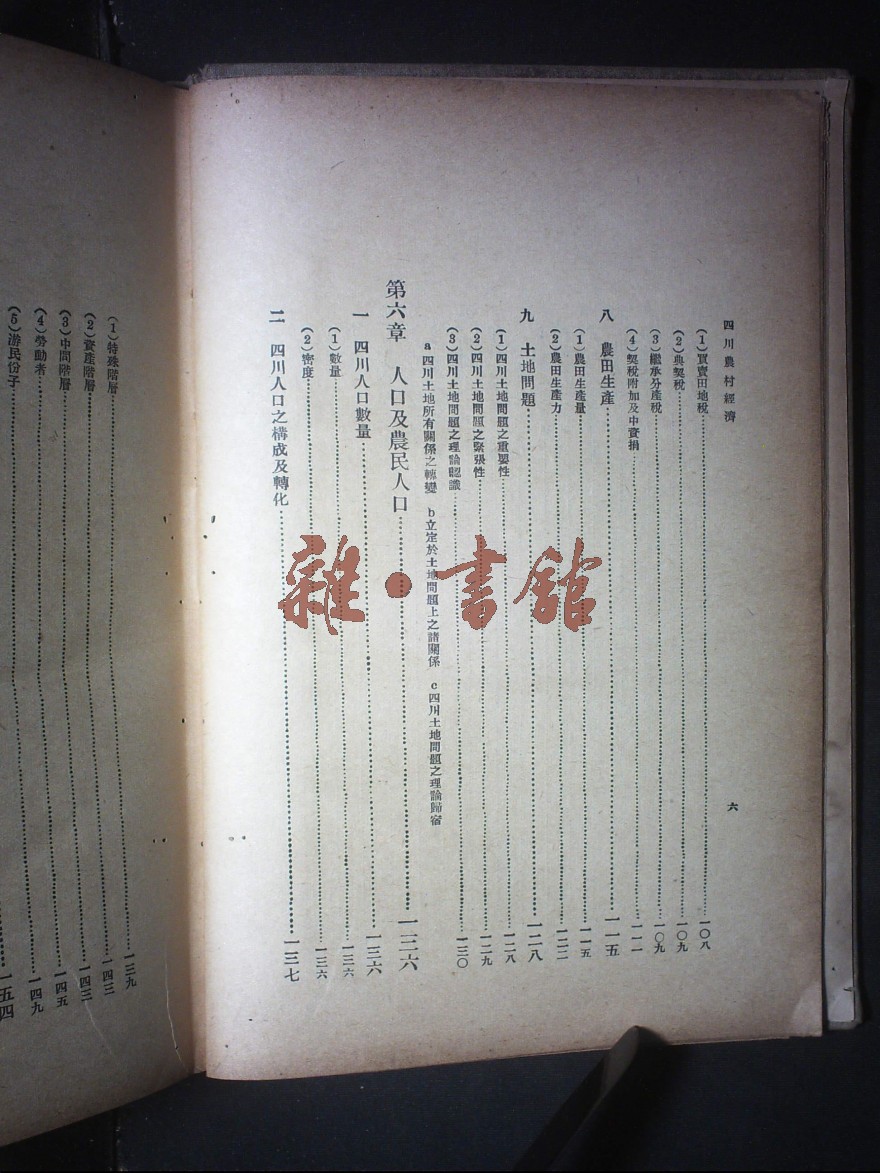 四川農村經濟
六
(1)買賣田地稅 一〇八
(2)典契稅 一〇九
(3)繼承分產稅 一〇九
(4)契稅附加及中資捐 一一一
八 農田生產 一一五
(1)農田生產量 一一五
(2)農田生產力 一二二
九 土地問題 一二八
(1)四川土地問題之重要性 一二八
(2)四川土地問題之緊張性 一二九
(3)四川土地問題之理論認識 一三〇
a四川土地所有關係之轉變 b立定於土地問題上之諸關係 c四川土地問題之理論歸宿
第六章 人口及農民人口 一二六
一 四川人口數量 一三六
(1)數量 一三六
(2)密度 一三六
二 四川人口之構成及轉化 一三七
(1)特殊階層 一三九
(2)資產階層 一四三
(3)中間階層 一四五
(4)勞動者 一四九
(5)游民份子 一五四
雜·書館